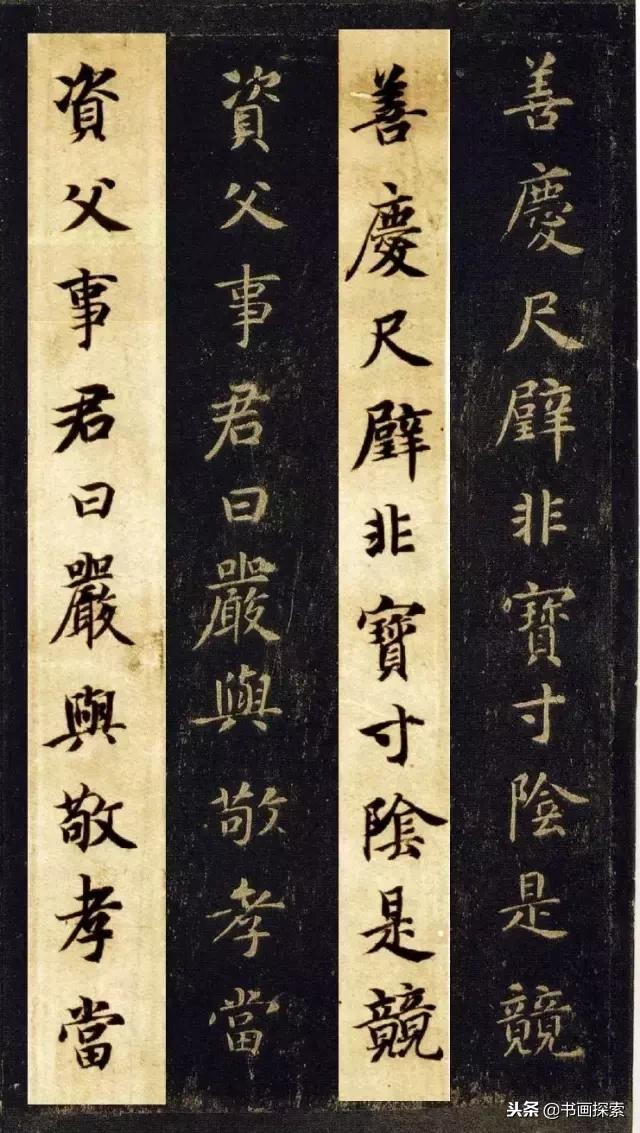 善慶尺璧非寶寸陰是競
善慶尺璧非寶寸陰是競
資父事君曰嚴與敬孝當
資父事君曰嚴與敬孝當
头条 @书画探索